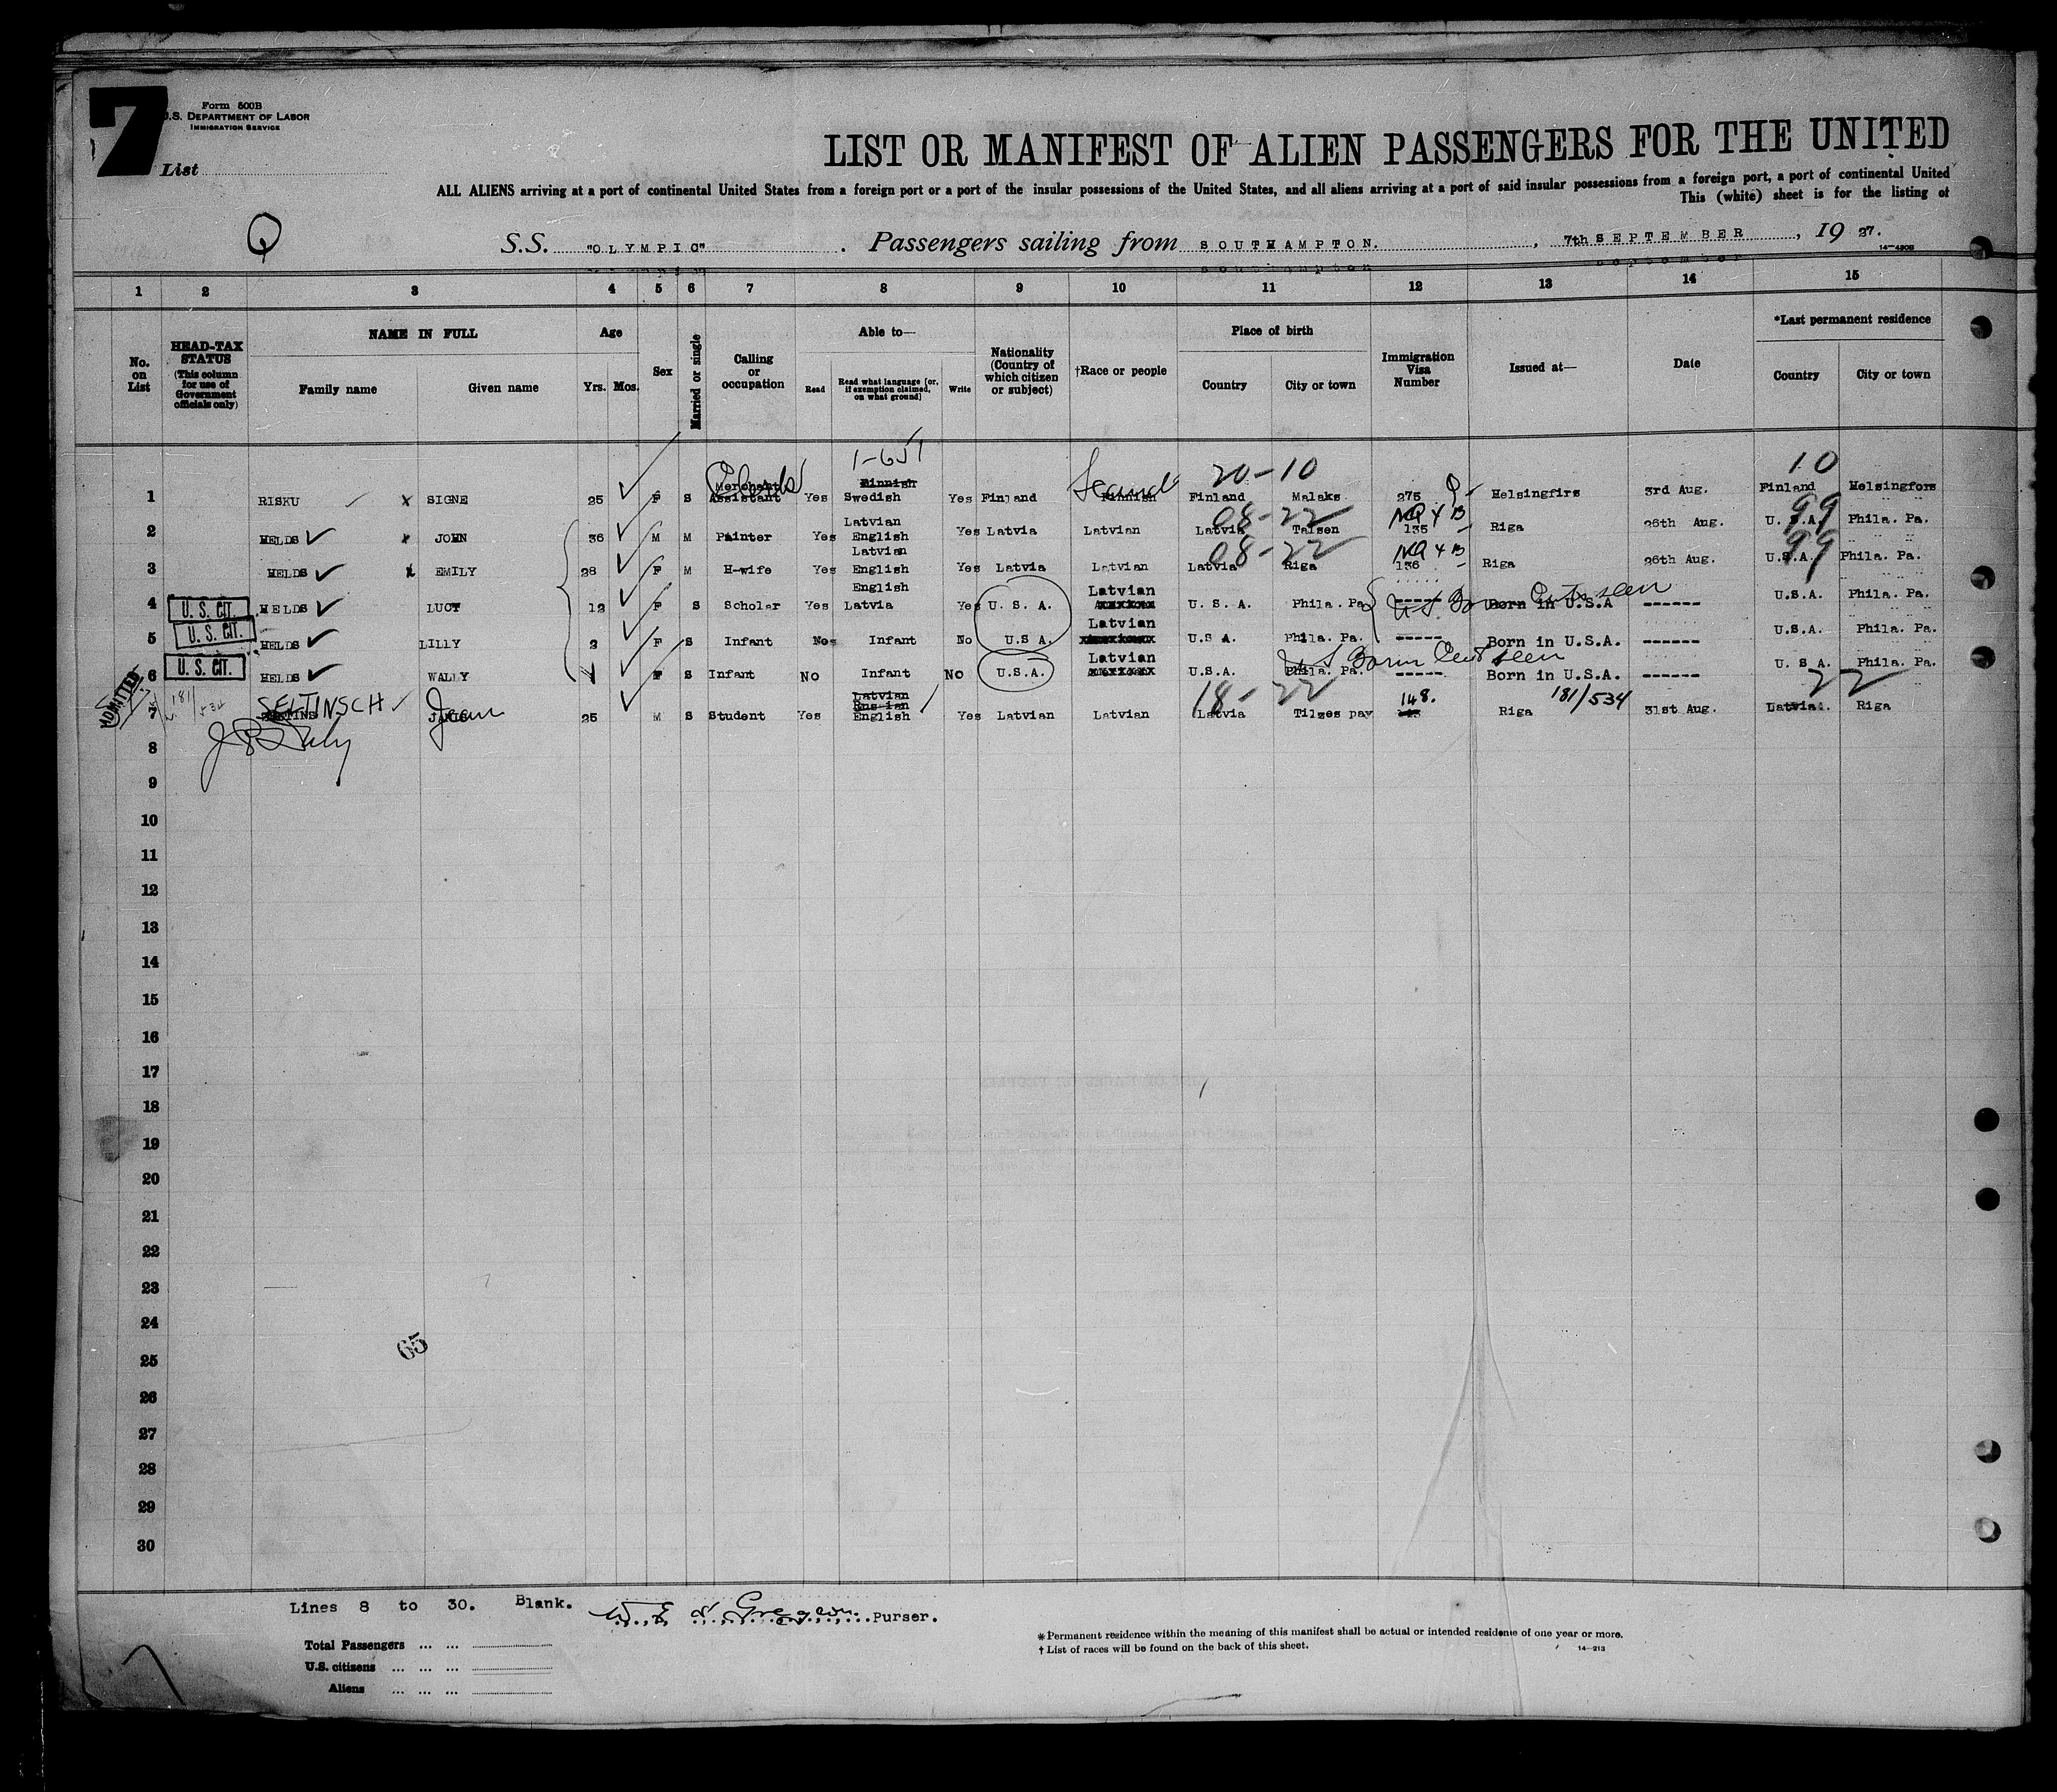 7
Form 500B
U.S. DEPARTMENT OF LABOR
IMMIGRATION SERVICE
List
LIST OR MANIFEST OF ALIEN PASSENGERS FOR THE UNITED
ALL ALIENS arriving at a port of continental United States from a foreign port or a port of the insular possessions of the United States, and all aliens arriving at a port of said insular possessions from a foreign port, a port of continental United
This (white) sheet is for the listing of
Q
S.S. "OLYMPIC". Passengers sailing from SOUTHAMPTON., 7th SEPTEMBER, 19 27.
1 2 3 4 5 6 7 8 9 10 11 12 13 14 15
No. on List
HEAD-TAX STATUS
(This column for use of Government officials only)
NAME IN FULL
Family name Given name
Age
Yrs. Mos.
Sex
Married or single
Calling or occupation
Able to—
Read Read what language [or, if exemption claimed, on what ground] Write
Nationality (Country of which citizen or subject)
†Race or people
Place of birth
Country City or town
Immigration Visa Number
Issued at—
Date
*Last permanent residence
Country City or town
1-651 20-10 10
Merchants Finnish Scand
1 RISKU x SIGNE 25 F S Assistant Yes Swedish Yes Finland Finnish Finland Malaks 275 Helsingfirs 3rd Aug. Finland Helsingfors
Latvian 08-22 NQ 4 B 99
2 HELDS x JOHN 36 M M Painter Yes English Yes Latvia Latvian Latvia Talsen 135 Riga 26th Aug. U.S.A. Phila. Pa.
Latvian 08-22 NQ 4 B 99
3 HELDS x EMILY 28 F M H-wife Yes English Yes Latvia Latvian Latvia Riga 136 Riga 26th Aug. U.S.A. Phila. Pa.
English Latvian
4 U. S. CIT. HELDS LUCY 12 F S Scholar Yes Latvia Yes U. S. A. U. S. A. Phila. Pa. ----- Born in U.S.A ------ U.S.A. Phila. Pa.
Latvian
5 U. S. CIT. HELDS LILLY 2 F S Infant No Infant No U.S A. U.S A. Phila. Pa. ----- Born in U.S.A. ------ U.S.A. Phila. Pa.
Latvian U S Born Cert seen
6 U. S. CIT. HELDS WALLY F S Infant No Infant No U.S.A. U.S.A. Phila. Pa. ----- Born in U.S.A. ------ U. S A. Phila. Pa.
ADMITTED 181/534 SELTINSCH Jean Latvian Russian 18-22 148. 181/534 22
7 25 M S Student Yes English Yes Latvian Latvian Latvia Tilzes pay Riga 31st Aug. Latvia. Riga
8
9
10
11
12
13
14
15
16
17
18
19
20
21
22
23
24
65
25
26
27
28
29
30
Lines 8 to 30. Blank. Purser.
Total Passengers ... ...
U.S. citizens ... ... ...
Aliens ... ... ...
* Permanent residence within the meaning of this manifest shall be actual or intended residence of one year or more.
† List of races will be found on the back of this sheet. 14—213